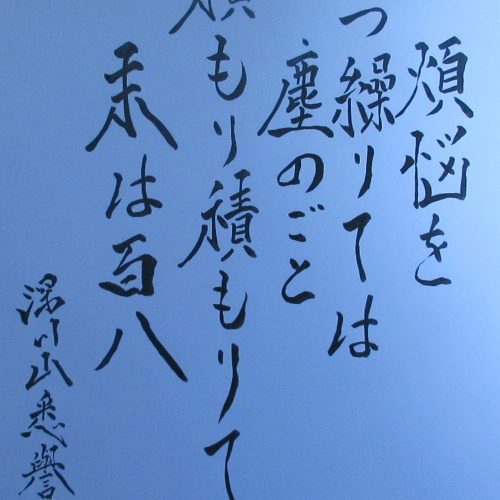 煩悩を
つ繰りては
塵のごと
積もり積もりて
末は百八
川山悉譽